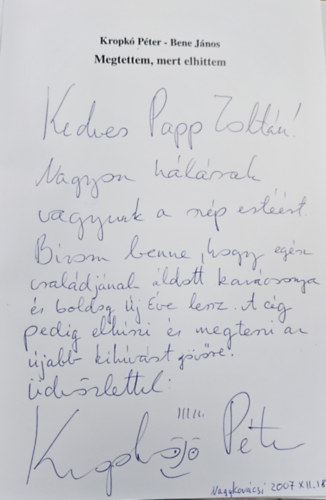 Kropkó Péter - Bene János
Megtettem, mert elhittem
Kedves Papp Zoltán!
Nagyon hálásak
vagyunk a szép estéért.
Bízom benne, hogy egész
családjának áldott karácsonya
és boldog új éve lesz. A cég
pedig elhiszi és megteszi az
újabb kihívást jövőre.
Üdvözlettel:
Kropkó Péter
Nagykovácsi 2007 XII. 18